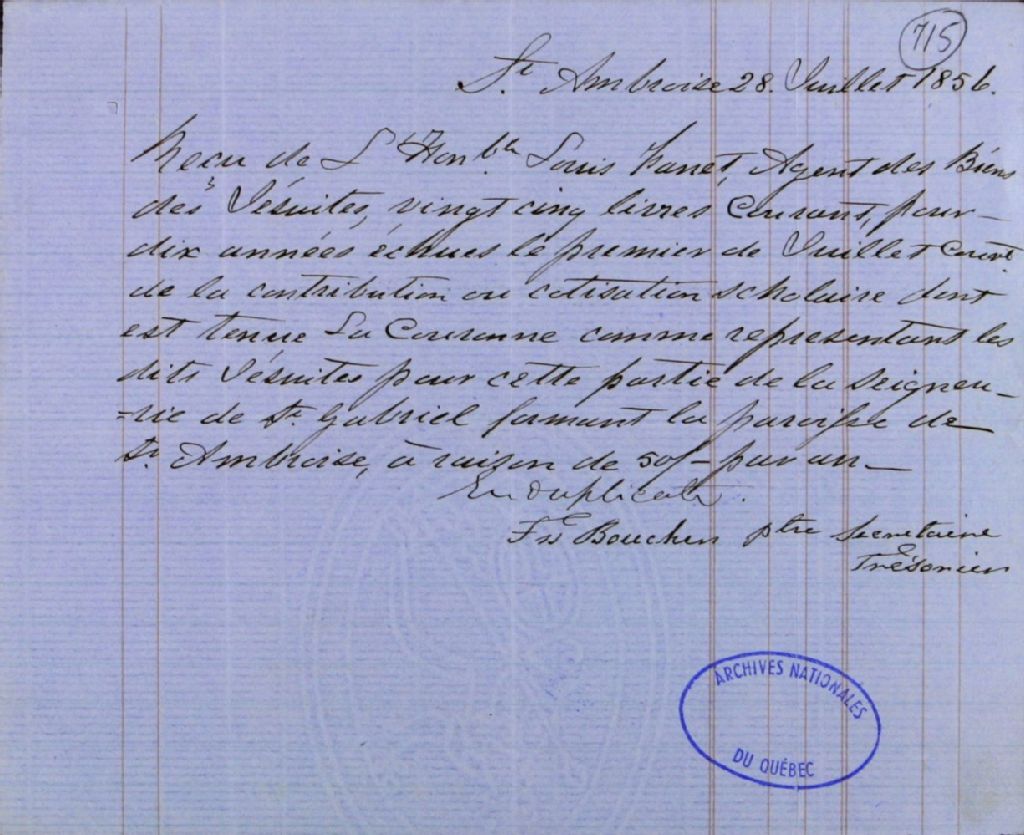 715
St. Ambroise 28. Juillet 1856.
Recu de L'Honble Louis Panet, Agent des Biens
des Jésuites, vingt cinq livres Courant, pour
dix années échues le premier de Juillet Cour't
de la contribution ou cotisation scholaire dont
est tenue La Couronne comme representant les
dits Jésuites pour cette partie de la Seigneu-
=rie de St. Gabriel formant la paroisse de
St. Ambroise, à raison de 50/- par an—
En duplicata.
Frs Boucher ptre Secretaire
Trésorier
ARCHIVES NATIONALES
DU QUÉBEC